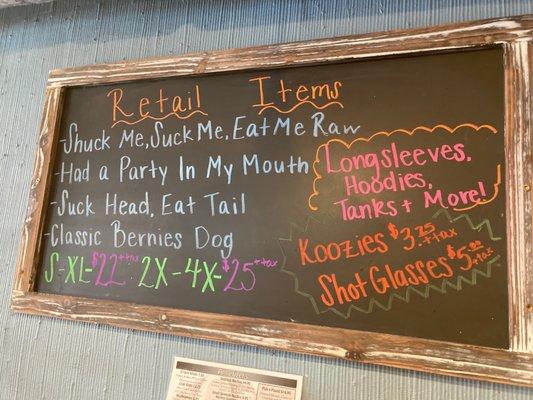 Retail Items
-Shuck Me, Suck Me, Eat Me Raw
-Had a Party In My Mouth
-Suck Head, Eat Tail
-Classic Bernies Dog
S-XL-$22++tax 2X-4X-$25++tax
Longsleeves,
Hoodies,
Tanks + More!
Koozies $3.25++tax
Shot Glasses $5.00+tax